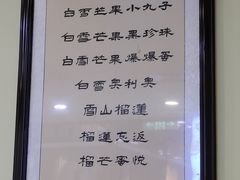 白雪芒果小九子
白雪芒果黑珍珠
白雪芒果爆爆蛋
白雪奥利奥
雪山榴莲
榴莲忘返
榴芒蜜悦